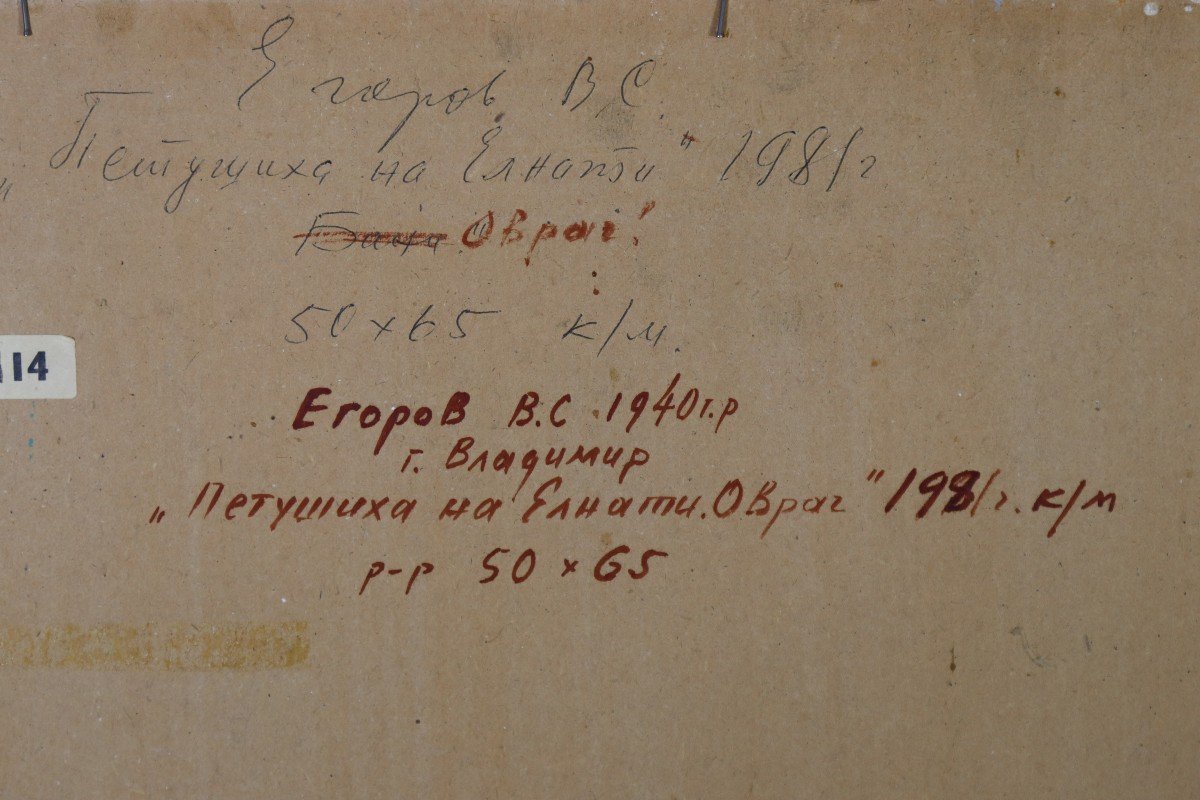 Егоров В С.
„Петушиха на Елнати" 1981г
Овраг!
50×65 к/м.
114
Егоров В.С 1940г.р
г. Владимир
„Петушиха на Елнати. Овраг" 1981г. к/м
р-р 50×65